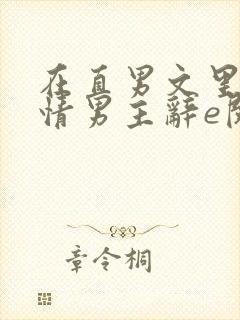 在直男文里
情男主辭e
章令桐